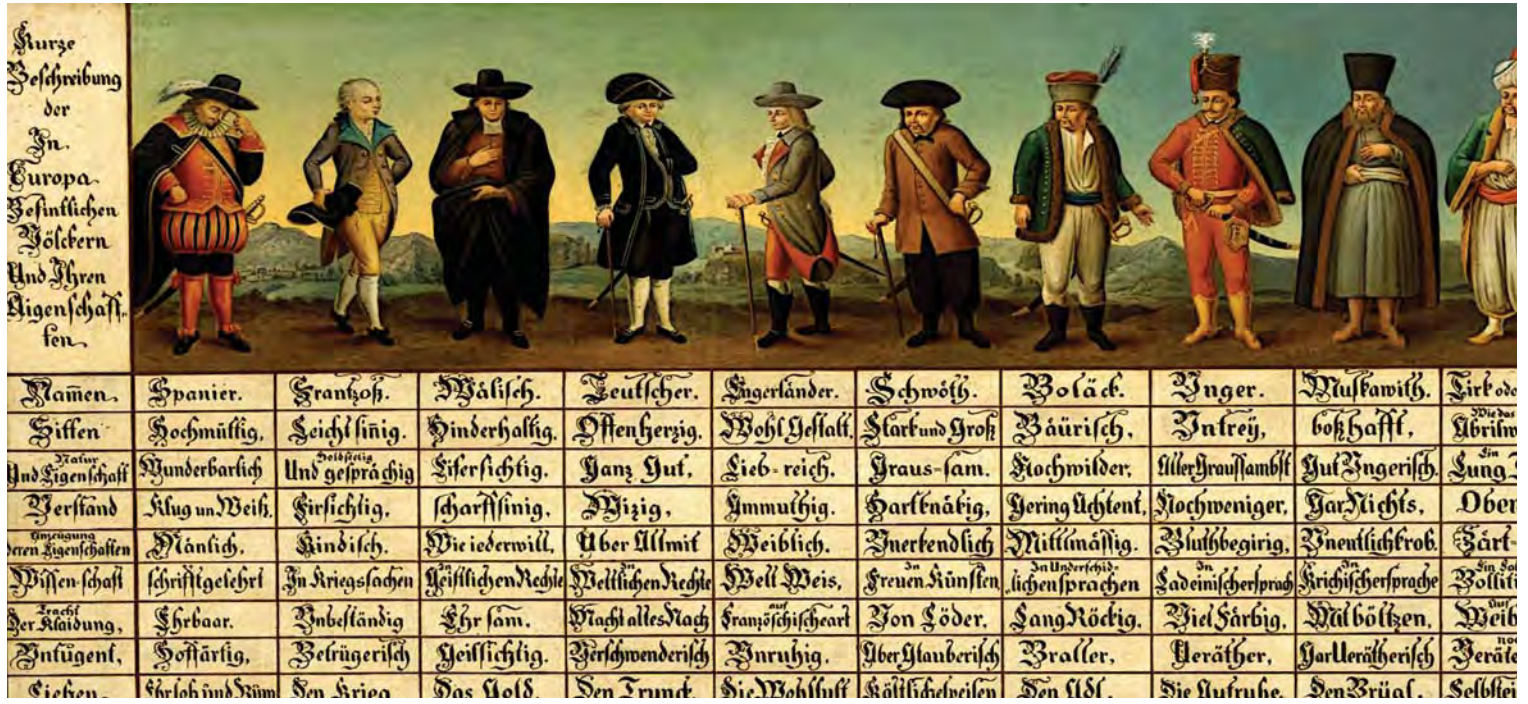 Kurze
Beschreibung
der
In
Europa
Befintlichen
Völckern
Und Ihren
Aigenschaff-
ten
Namen. Spanier. Frantzoß. Wälisch. Teutscher. Engerländer. Schwöth. Boläck. Vnger. Muskawith. Tirk oder
Sitten Hochmüttig, Leicht sinig. Hinderhaltig. Offenherzig, Wohl Gestalt, Starck und Groß Bäurisch, Vntrey, boßhafft, Wie das Abrilw
Natur Und Eigenschaft Wunderbarlich Holdseelig Und gesprächig Eifersichtig. Ganz Gut, Lieb-reich. Graus-sam. Nochwilder, Aller Graussambst Gut Vngerisch. Ein Lung
Verstand Klug un Weiß. Firsichtig, scharffsinig, Wizig, Ammuthig. Hartknäkig, Gering Achtent, Nochweniger, Gar Nichts, Ober
Anzeugung deren Eigenschaften Mänlich, Kindisch. Wie iederwill, Über Allmit Weiblich. Vnerkendlich Mittlmässig. Bluthbegirig, Vnentlichkrob. Zärt-
Wissenschaft schrifftgelehrt In Kriegssachen Geistlichen Rechte In Weltlichen Rechte Welt Weis. In Freuen Künsten In Underschid-lichen sprachen In Ladeinischersprach In Krichischersprache Pollitic
Tracht Der Klaidung, Ehrbaar. Vnbeständig Ehrsam. Macht alles Nach auf Französchischeart Von Löder, Lang Röckig, Viel Färbig, Mit böltzen, Auf Weib
Vntugent, Hoffärtig, Betrügerisch Geilsichtig. Verschwenderisch Vnruhig. Über Glauberisch Braller, Veräther, Gar Verätherisch noch Veräte
Lieben Ehrlob und Rüm Den Krieg Das Gold, Den Trunck, Die Wohllust Köstlichespeisen Den Adl, Die Aufruhe, Den Brügl, Selbstei